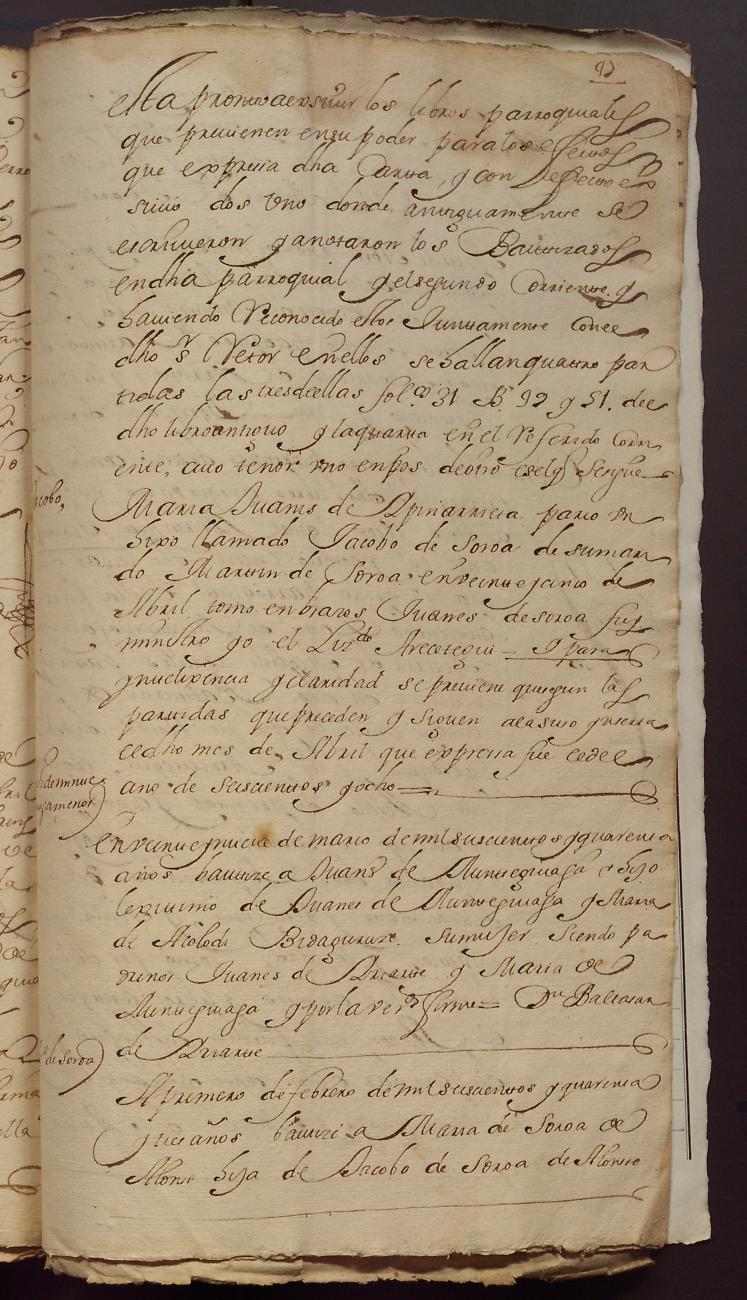 92
esta prompto a exsivir los libros parroquiales
que previenen en su poder para los efectos
que expresa dha Carta, y con efecto ex
sivio dos Uno donde antiguamente se
escriuieron y anotaron los Bautizados
en dha parroquial y el segundo Corriente. y
hauiendo Reconocido estos Juntamente con ee
dho sr Retor en ellos se hallan quatro par
tidas las tres de ellas fol.os 31 B. 92 y 51. dee
dho libro antiguo y la quarta en el Referido Corri
ente, cuio tenor uno en pos de otro es el q Sesigue
Maria Juanis de Apinarricta pario un
hixo llamado Jacobo de Soroa de su mari
do Martin de Soroa en veinte y cinco de
Abril tomo en brazos Juanes de soroa fuy
ministro yo el Lizdo Arecetegui = Y para
yntelixencia y claridad se previene que segun las
partidas que preceden y siguen
ee dho mes de Abril que expressa fue ee de ee
año de seiscientos y ocho =
En veinte y nueue de marzo de mil seiscientos y quarenta
años bautize a Juans de Munteguiaga hijo
lexitimo de Juanes de Munteguiaga y Maria
de Acolodi Bidagurure. su mujer siendo pa
drinos Juanes de Oriarte y Maria de
Munteguiaga y por la verd firme = Dn Baltasar
de Oriarte
A primero de febrero de mil seiscientos y quarenta
y tres años bautize a Maria de Soroa de
Alonso hija de Jacobo de Soroa de Alonso
Jacobo,
de Soroa